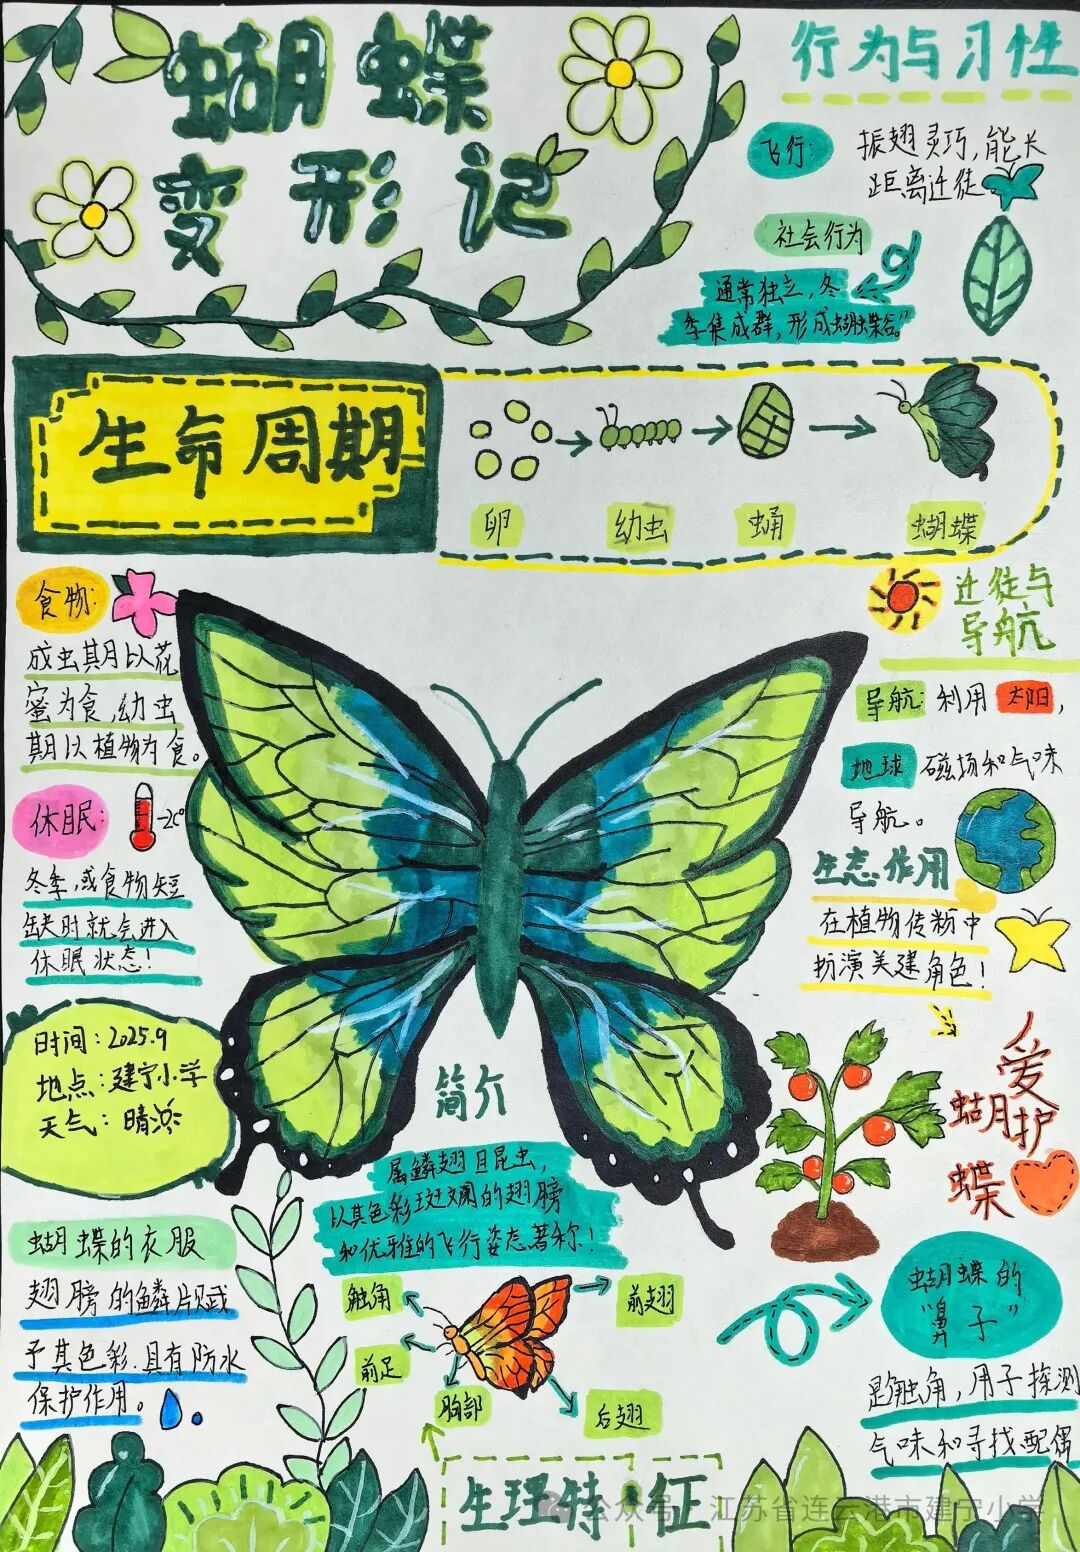 蝴蝶
变形记
行为与习性
飞行：
振翅灵巧，能长
距离迁徒。
社会行为
通常独立，冬
季集成群，形成蝴蝶谷。”
生命周期
卵
幼虫
蛹
蝴蝶
食物：
成虫期以花
蜜为食，幼虫
期以植物为食。
休眠：
冬季，或食物短
缺时就会进入
休眠状态！
迁徙与
导航
导航：利用太阳，
地球磁场和气味
导航。
生态作用
在植物传粉中
扮演关键角色！
时间：2025.9
地点：建宁小学
天气：晴
爱护
蝴蝶
简介
属鳞翅目昆虫，
以其色彩斑斓的翅膀
和优雅的飞行姿态著称！
蝴蝶的衣服
翅膀的鳞片赋
予其色彩.具有防水
保护作用。
触角
前翅
前足
胸部
后翅
生理特征
蝴蝶的
“鼻子”
是触角，用于探测
气味和寻找配偶
公众号 · 江苏省连云港市建宁小学